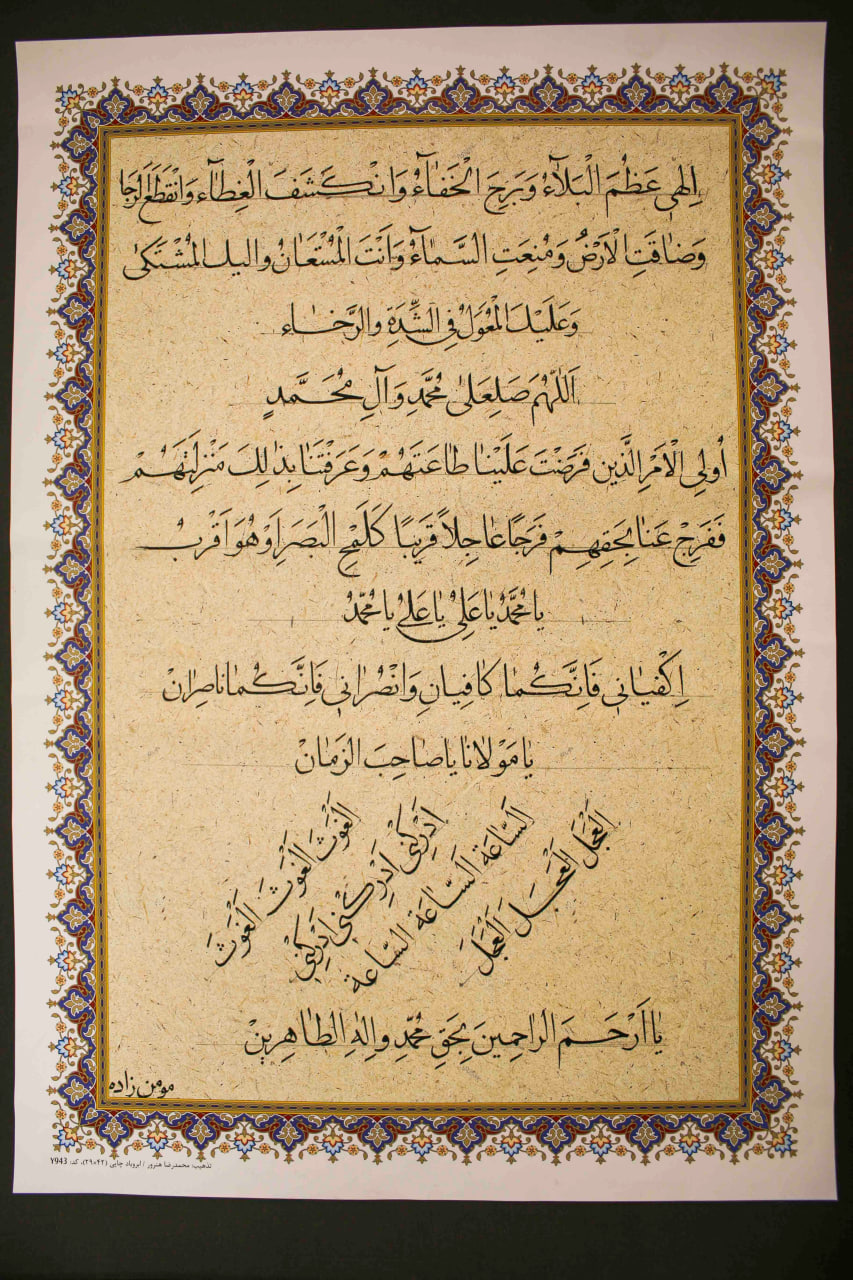 اِلهٰی عَظُمَ الْبَلآءُ وَبَرِحَ الْخَفآءُ وَانْکَشَفَ الْغِطآء وَانْقَطَعَ الرَّجا
وَضاقَتِ الْاَرْضُ وَمُنِعَتِ السَّمآءُ وَاَنْتَ الْمُسْتَعانُ والیك المُشْتَکیٰ
وَعَلَیْكَ المُعَوَلُ فِی الشِّدَةِ والرَّخاء
اَللّهُمَ صَلِ عَلیٰ مُحَمَّدٍ وَ آلِ مُحَمَّدٍ
اُولِی الْاَمْرِ الَّذین فَرَضْتَ عَلَیْنا طاعَتَهُمْ وَعَرَفْتَنا بِذالِكَ مَنْزِلَتَهُمْ
فَفَرِجْ عَنا بِحَقِهِمْ فَرَجًا عاجِلاً قَریبًا کَلَمْحِ الْبَصَرِ اَوْ هُوَ اَقْرَبُ
یا مُحَمَّدُ یا عَلِیُ یا عَلیُ یا مُحَمَّدُ
اِکْفیانی فَاِنَّکُما کافِیانِ وَانْصُرانی فَاِنَّکُما ناصِرانْ
یا مَوْلانا یا صاحِبَ الزَمانْ
الْغَوْثَ الْغَوْثَ الْغَوْثَ
اَدْرِکْنی اَدْرِکْنی اَدْرِکْنی
السّاعَة اَلسّاعَة السّاعة
الْعَجَلَ الْعَجَلَ الْعَجَلَ
یا اَرْحَمَ الراحِمینَ بِحَقِ مُحَمَّدٍ والِهِ الطاهِرینْ
مومن زاده
تذهیب: محمدرضا هنرور / ابروباد چاپی (۲۹×۴۲)، کد: Y943